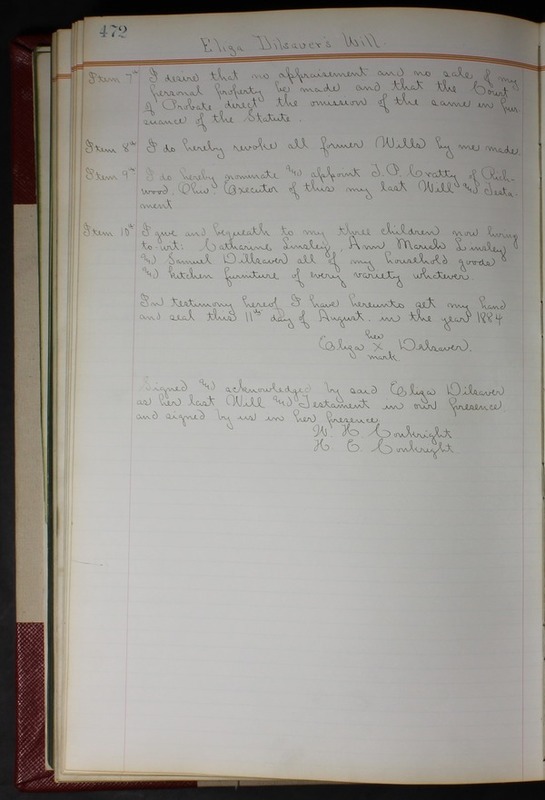 472
Eliza Dilsaver's Will.
Item 7th I desire that no appraisement and no sale of my
personal property be made and that the Court
of Probate direct the omission of the same in pur-
suance of the Statute.
Item 8th I do hereby revoke all former Wills by me made.
Item 9th I do hereby nominate & appoint T. P. Cratty of Rich-
wood, Ohio Executor of this my last Will & Testa-
ment
Item 10th I give an bequeath to my three children now living
to-wit: Catharine Linsley, Ann Mariah Linsley
& Samuel Dillsaver all of my household goods
& kitchen furniture of every variety whatever.
In testimony hereof I have hereunto set my hand
and seal this 11th day of August. in the year 1884
her
Eliza X Dilsaver.
mark.
Signed & acknowledged by said Eliza Dilsaver
as her last Will & Testament in our presence
and signed by us in her presence
W. H. Conkright
H. E. Conkright.